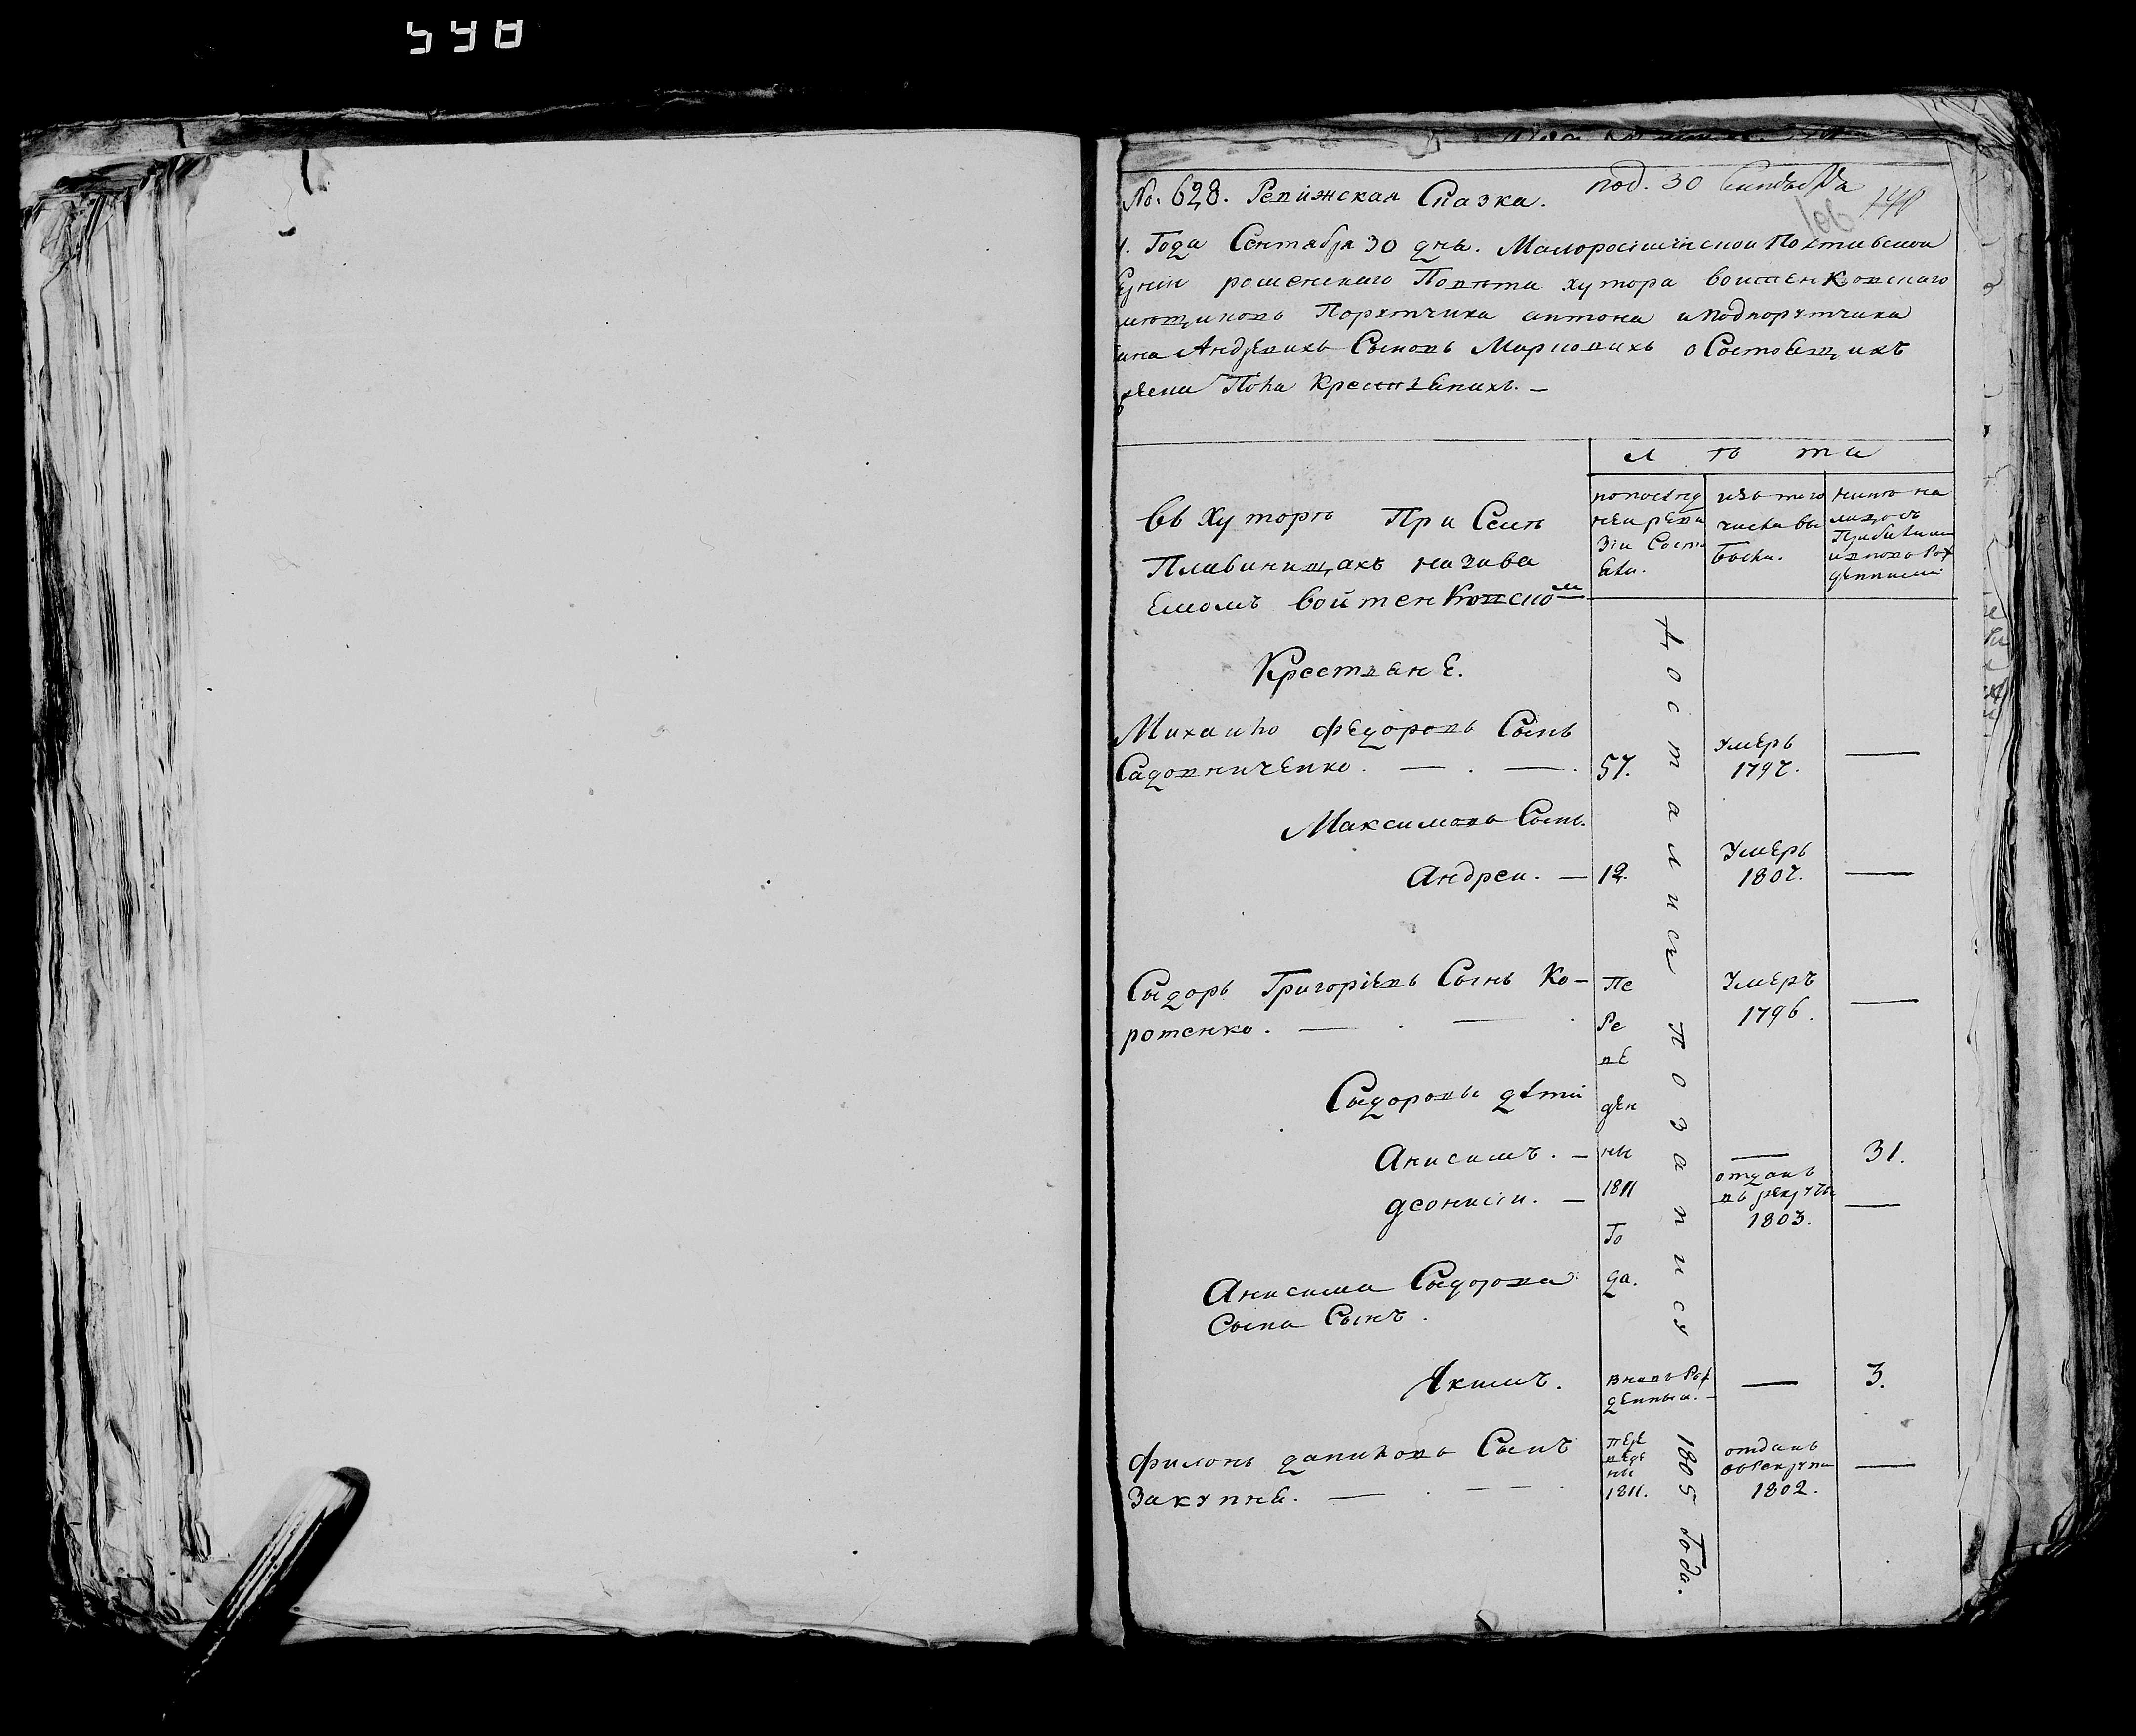 548
No. 628. Ревижская Сказка. под. 30 Сентября
106
Года Сентября 30 дня. Малоросийской Полтавской
рнии роменскаго Повѣта хутора войтенковскаго
мѣщиковъ Порутчика антона и Подпорутчика
Андреевихъ Сыновъ Марковихъ о Состоящихъ
Пола Крестянахъ. —
лѣта
въ Хуторѣ При Селѣ
Плавинищахъ назива
емомъ войтенковском
попослед
ней реви
зіи Состо
яли.
изъ того
числа вы
было.
нинѣ на
лицо съ
Прибилими
и вновь Рож
денними
Крестяне.
Михаило федоровъ Синъ
Садовниченко. — . — . 57. умеръ 1797. —
Максимовъ Синъ.
Андреи. — 12. Умеръ 1807. —
Сыдоръ Григоріевъ Сынъ Ко-
ротенко. — . — . Умеръ 1796. —
Сыдоровы дѣти
Анисимъ. — — 31.
деонисіи. — отданъ въ рекруты 1803. —
Пе
Ре
ве
ден
ны
1811
Го
да.
Анисима Сыдорова
Сына Сынъ.
Якимъ. вновь Рож
денныи. — — 3.
филонъ даниловъ Сынъ
Закупнѣ. — . — — . пере
веде
ны
1811. отданъ
въ Рекруты
1802. —
Досталися По запису 1805 Года.